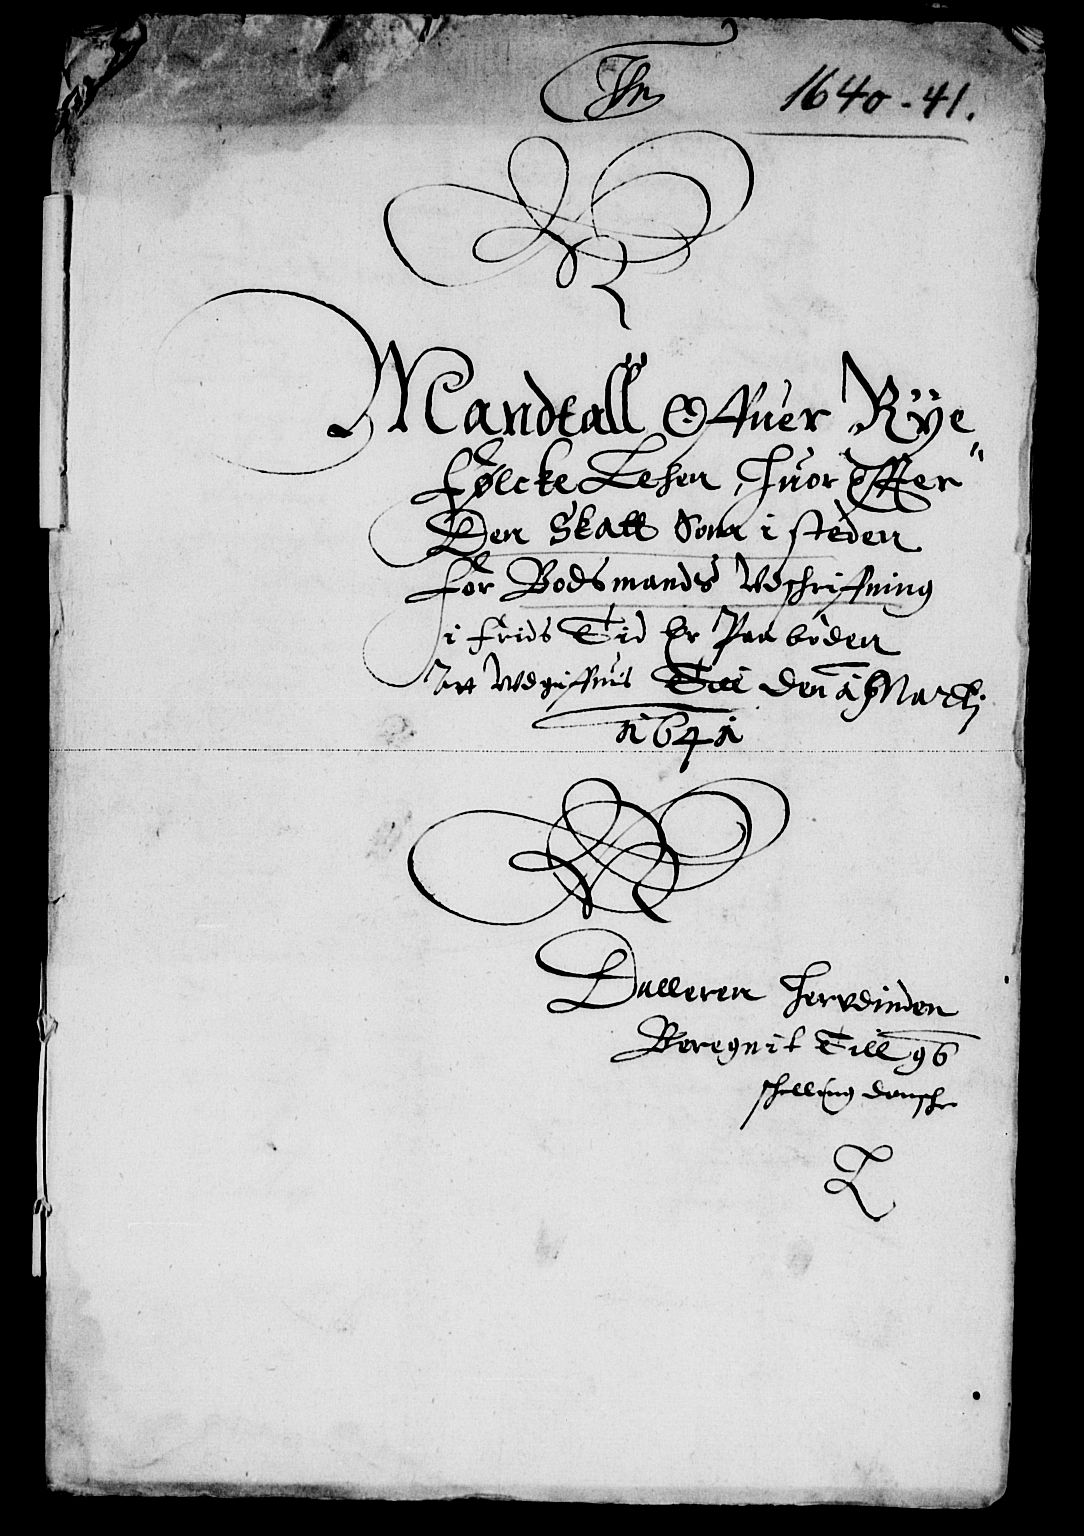 1640-41.
Mandtall Offuer Rÿe
følcke Lehen huor Effter
Den Skatt Som i steden
for Bodsmands Vdschriffning
i frids Tid Er Paa böden
At vdgiffuis Till den 1 Martij
1641
Dalleren herudinden
Beregnit Till 96
schelling dansche